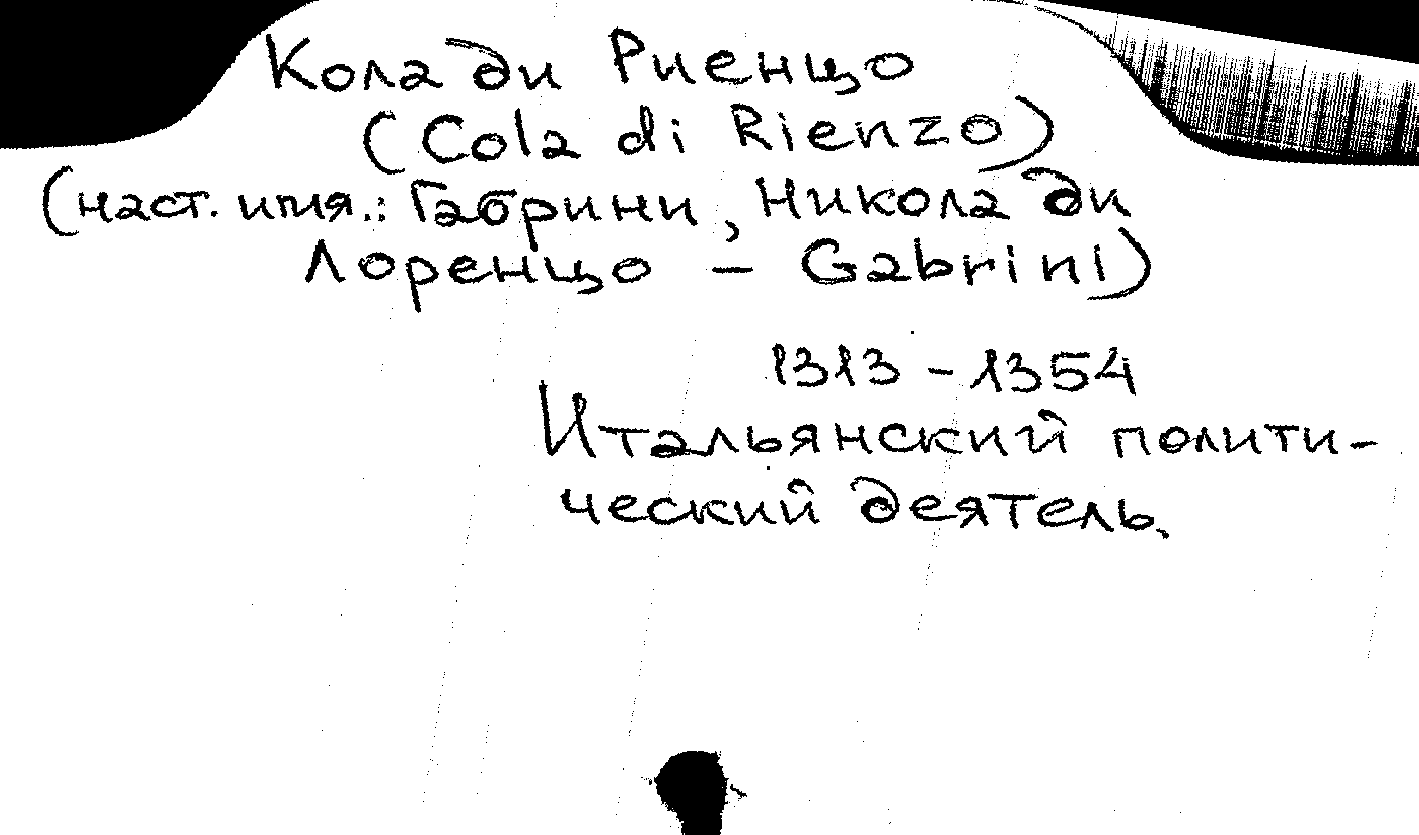 Кола ди Риенцо
(Cola di Rienzo)
(наст. имя.: Габрини, Никола ди
Лоренцо – Gabrini)
1313 – 1354
Итальянский полити-
ческий деятель.